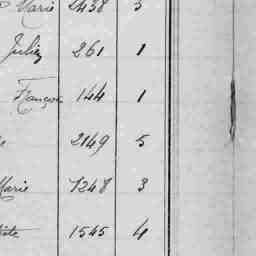 Marie 2438 3
Julien 261 1
François 144 1
2149 5
Marie 1248 3
1545 4